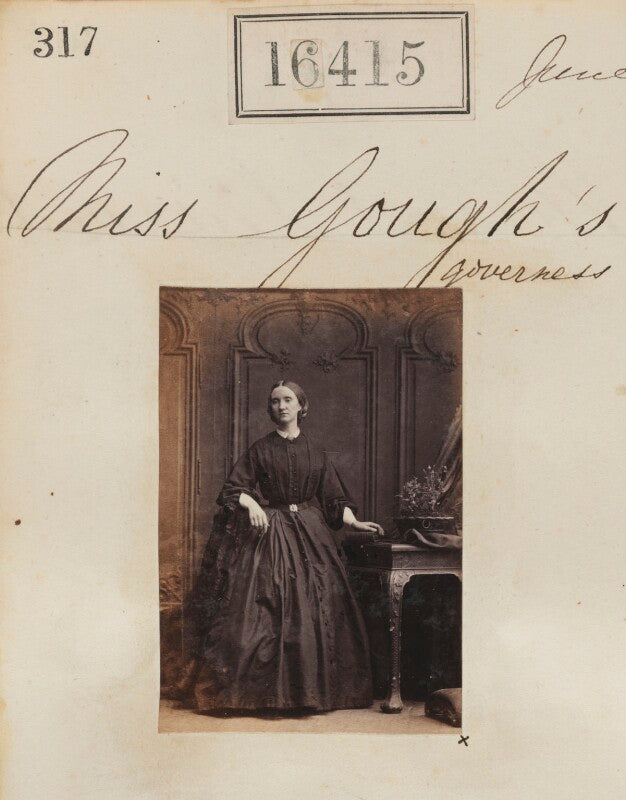 317
16415
June
Miss Gough's
governess
x